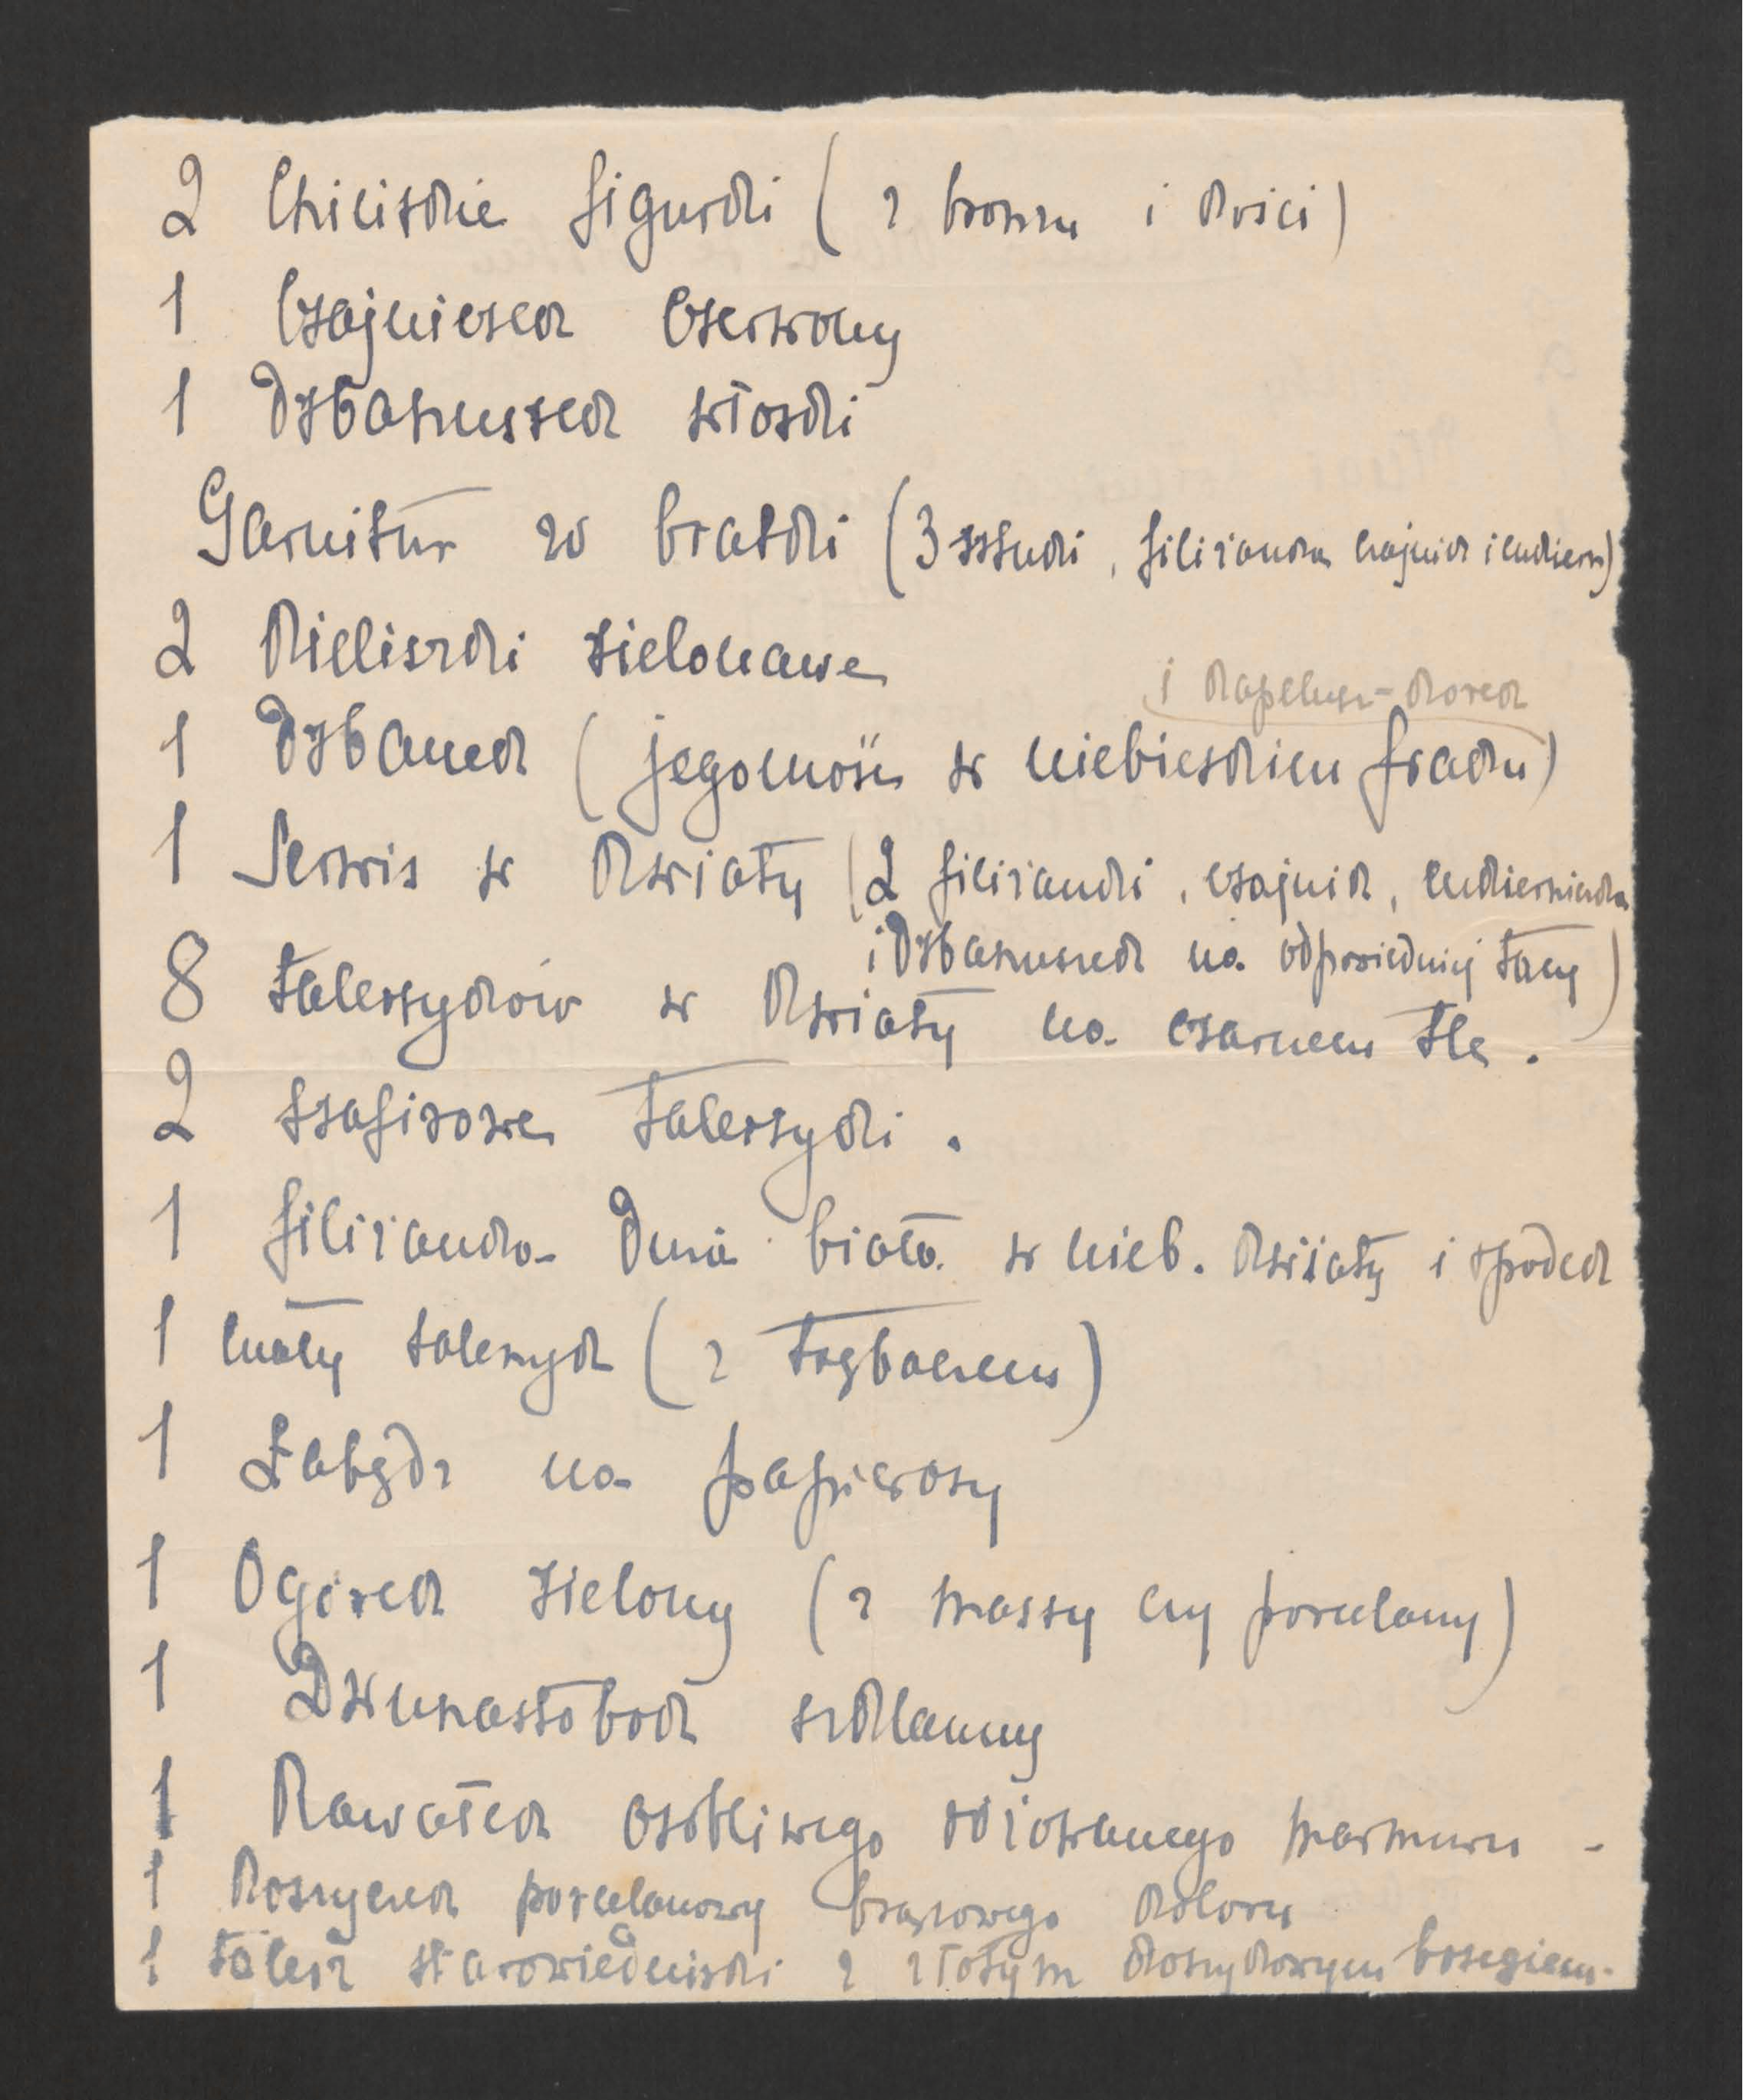 2 Chińskie figurki (z bronzu i kości)
1 Czajniczek czerwony
1 Dzbanuszek włoski
Garnitur w bratki (3 sztuki, filiżanka czajnik i cukiern)
2 Kieliszki zielonawe
i kapelusz-korek
1 Dzbanek (jegomość w niebieskim fraku)
1 Serwis w kwiaty (2 filiżanki, czajnik, cukierniczka
i dzbanuszek na odpowiedniej tacy)
8 talerzyków w kwiaty na czarnem tle.
2 szafirowe talerzyki.
1 filiżanka duża biała w nieb. kwiaty i spodek
1 mały talerzyk (z trębaczem)
1 Łabędź na papierosy
1 Ogórek zielony (z massy czy porcelany)
1 Dwunastobok szklanny
1 Kawałek osobliwego różowanego marmuru -
1 Koszyczek porcelanowy brązowego koloru
1 talerz starowiedeński z złotym koszykowym brzegiem.